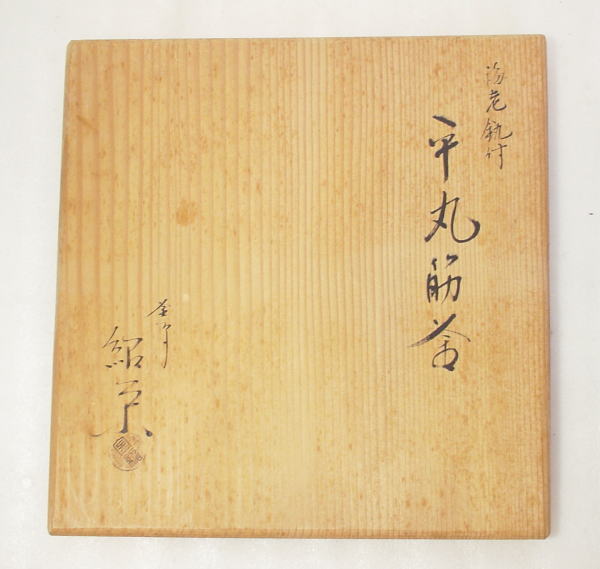 海老釻付
平丸筋釜
釜師
紹美